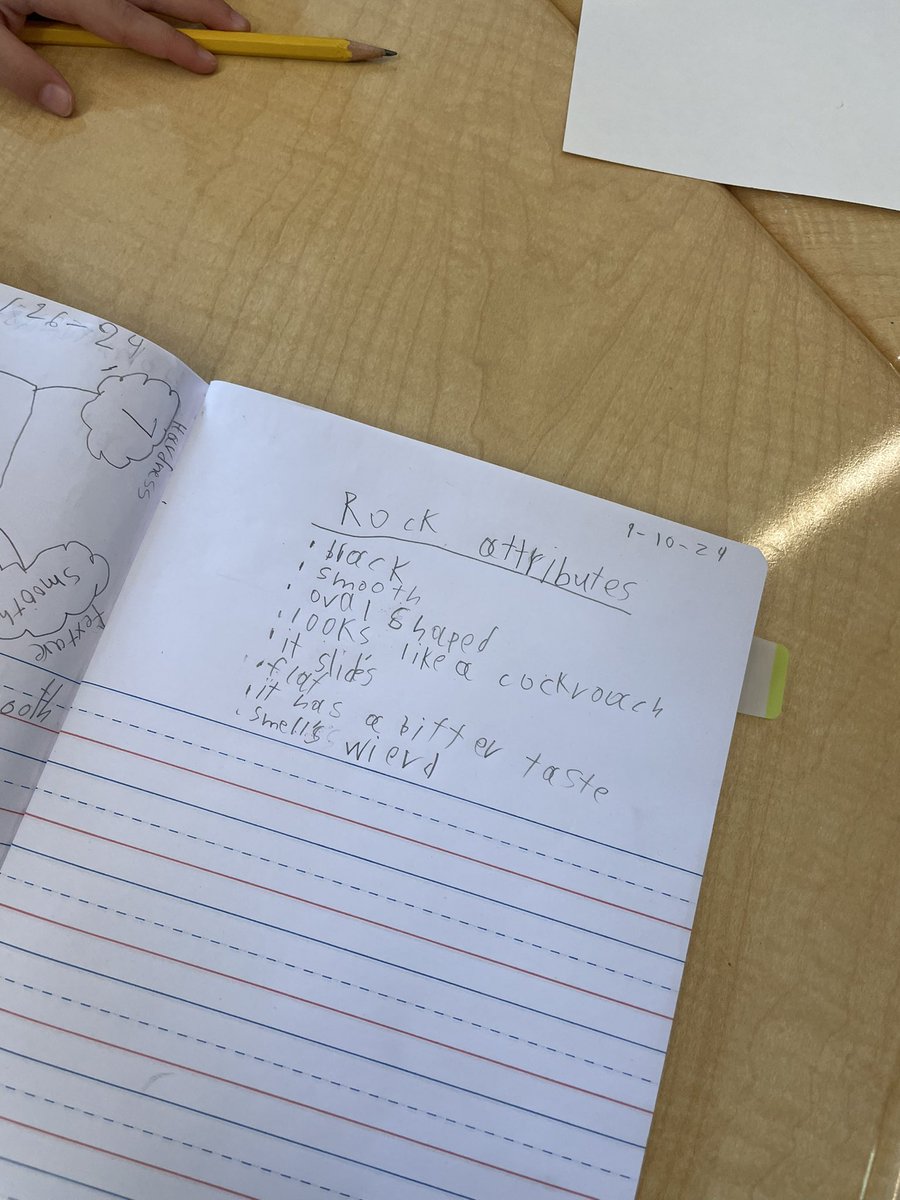 1-26-24
Hardness
smooth
textave
ooth
Rock attributes
9-10-24
black
smooth
oval shaped
looks like a cockroach
it slides
flat
it has a bitter taste
smells wierd